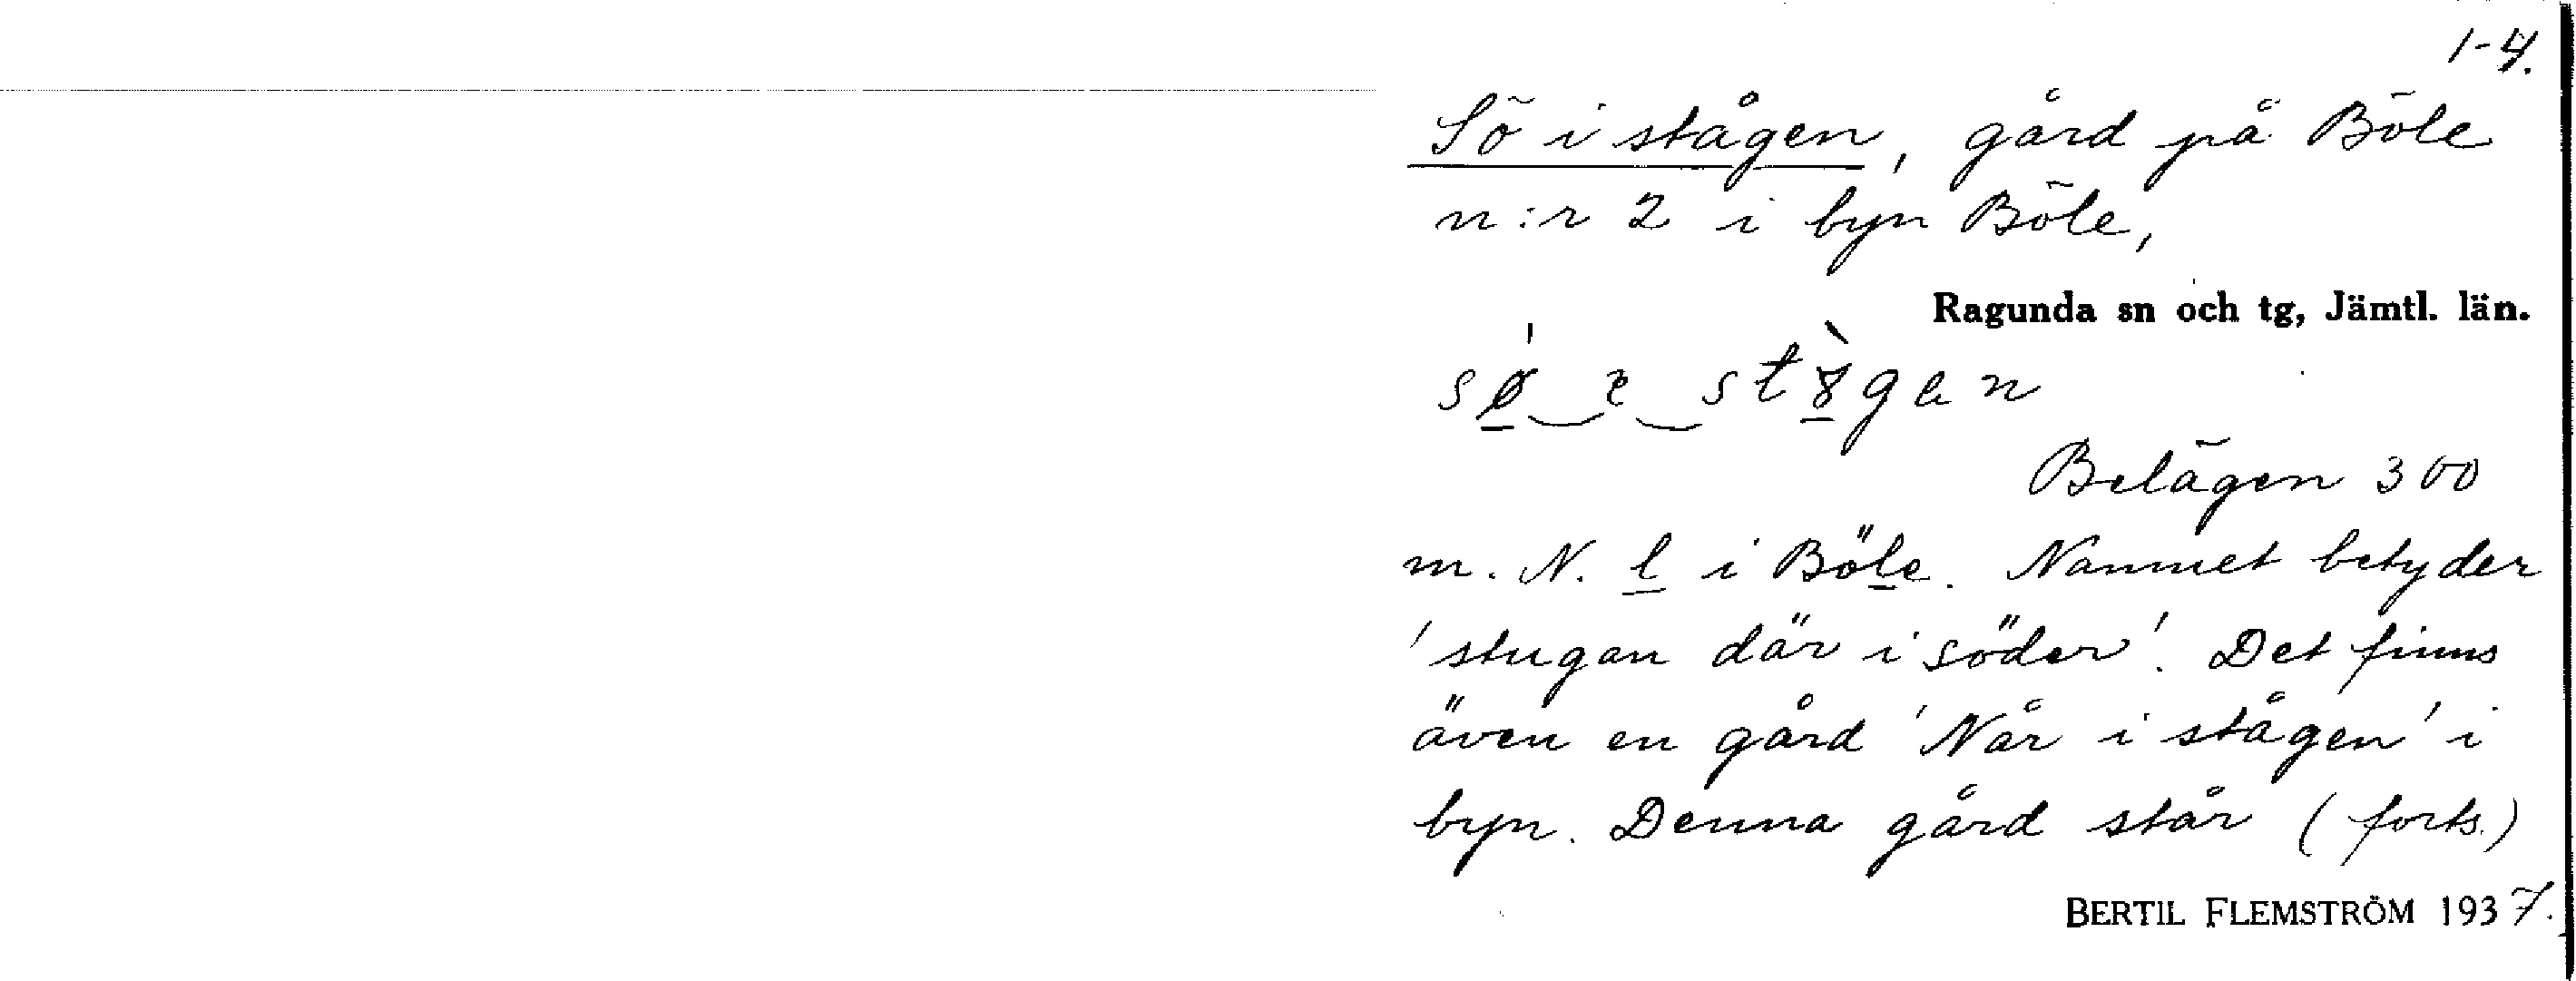 1-4.
Sö i stågen, gård på Böle
n:r 2 i byn Böle,
Ragunda sn och tg, Jämtl. län.
Belägen 300
m. N. l i Böle. Namnet betyder
'stugan där i söder'. Det finns
även en gård 'Når i stågen' i
byn. Denna gård står (forts.)
BERTIL FLEMSTRÖM 1937.